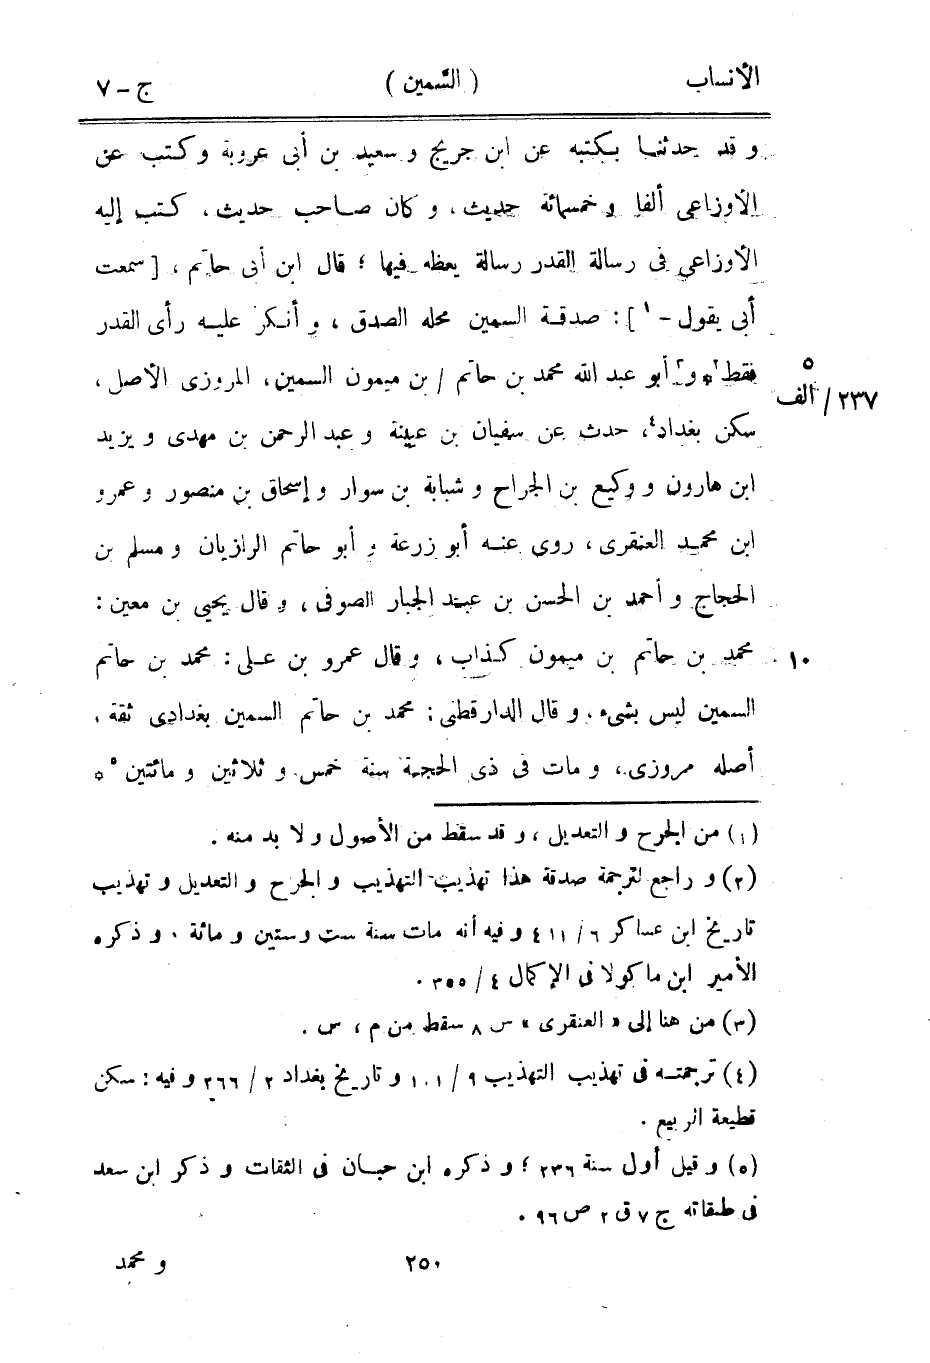 الأنساب ( السَّمين ) ج - ٧
و قد حدثنا بكتبه عن ابن جريج و سعيد بن أبى عروبة وكتب عن
الأوزاعى ألفا و خمسائة حديث ، و كان صاحب حديث ، كتب إليه
الأوزاعى فى رسالة القدر رسالة يعظه فيها ؛ قال ابن أبى حاتم ، [ سمعت
أبى يقول - ١ ] : صدقة السمين محله الصدق ، و أنكر عليه رأى القدر
فقط ٢ * و ٣ أبو عبد الله محمد بن حاتم / بن ميمون السمين ، المروزى الأصل ،
٥
٢٣٧ / الف
سكن بغداد ٤ ، حدث عن سفيان بن عيينة و عبد الرحمن بن مهدى و يزيد
ابن هارون و وكيع بن الجراح و شبابة بن سوار و إسحاق بن منصور و عمرو
ابن محمد العنقرى ، روى عنه أبو زرعة و أبو حاتم الرازيان و مسلم بن
الحجاج و أحمد بن الحسن بن عبد الجبار الصوفى ، و قال يحيى بن معين :
محمد بن حاتم بن ميمون كذاب ، و قال عمرو بن على : محمد بن حاتم ١٠
السمين ليس بشىء . و قال الدارقطنى : محمد بن حاتم السمين بغدادى ثقة ،
أصله مروزى ، و مات فى ذى الحجة سنة خمس و ثلاثين و مائتين ٥ *
(١) من الجرح و التعديل ، و قد سقط من الأصول و لا بد منه .
(٢) و راجع لترجمة صدقة هذا تهذيب التهذيب و الجرح و التعديل و تهذيب
تاريخ ابن عساكر ٦ / ٤١١ و فيه أنه مات سنة ست وستين و مائة . و ذكره
الأمير ابن ماكولا فى الإكمال ٤ / ٣٥٥ .
(٣) من هنا إلى « العنقرى » س ٨ سقط من م ، س .
(٤) ترجمته فى تهذيب التهذيب ٩ / ١٠١ و تاريخ بغداد ٢ / ٢٦٦ و فيه : سكن
قطيعة الربيع .
(٥) و قيل أول سنة ٢٣٦ ؛ و ذكره ابن حبان فى الثقات و ذكر ابن سعد
فى طبقاته ج ٧ ق ٢ ص ٩٦ .
٢٥٠ و محمد